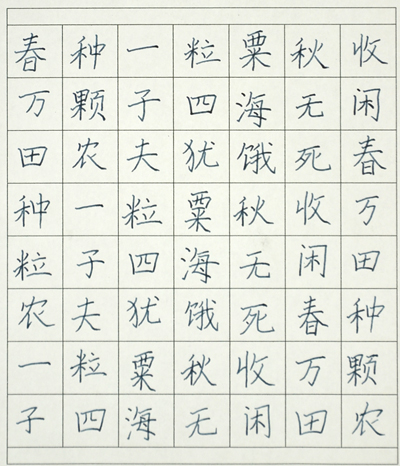 春种一粒粟秋收
万颗子四海无闲
田农夫犹饿死春
种一粒粟秋收万
粒子四海无闲田
农夫犹饿死春种
一粒粟秋收万颗
子四海无闲田农